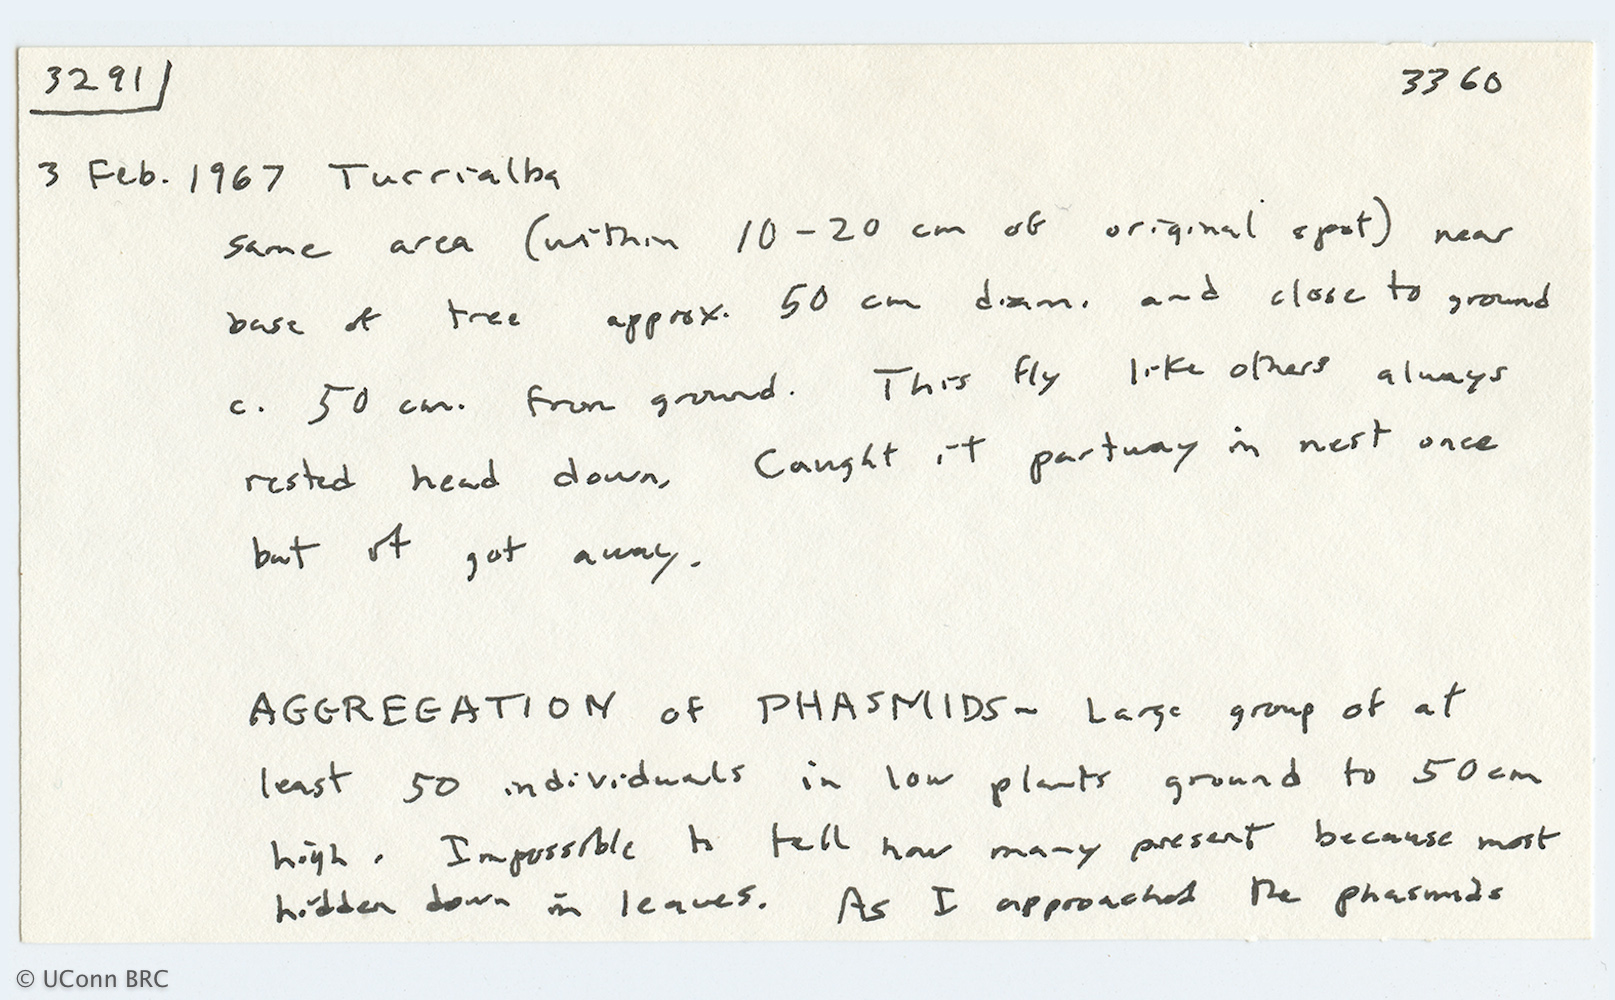 3291 3360
3 Feb. 1967 Turrialba
same area (within 10-20 cm of original spot) near
base of tree approx. 50 cm diam. and close to ground
c. 50 cm. from ground. This fly like others always
rested head down. Caught it partway in nest once
but it got away.
AGGREGATION of PHASMIDS - Large group of at
least 50 individuals in low plants ground to 50 cm
high. Impossible to tell how many present because most
hidden down in leaves. As I approached the phasmids
© UConn BRC